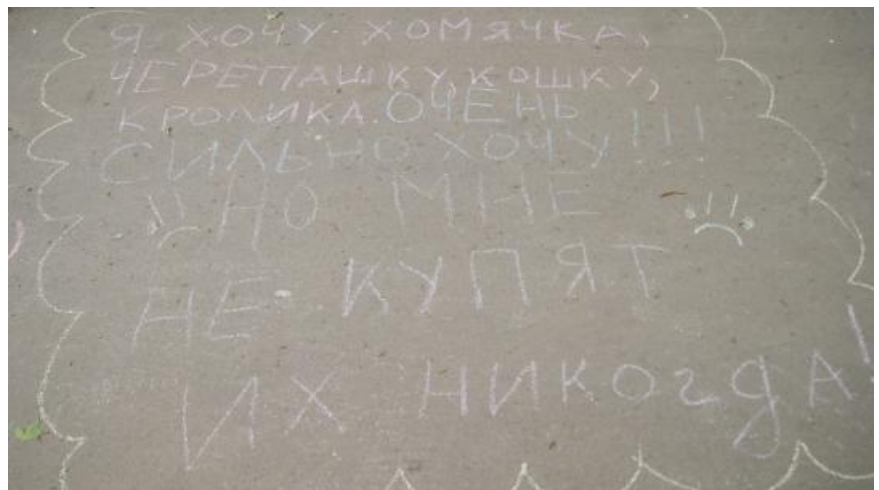 Я ХОЧУ ХОМЯЧКА,
ЧЕРЕПАШКУ, КОШКУ,
КРОЛИКА. ОЧЕНЬ
СИЛЬНО ХОЧУ!!!
НО МНЕ
НЕ КУПЯТ
ИХ НИКОГДА!